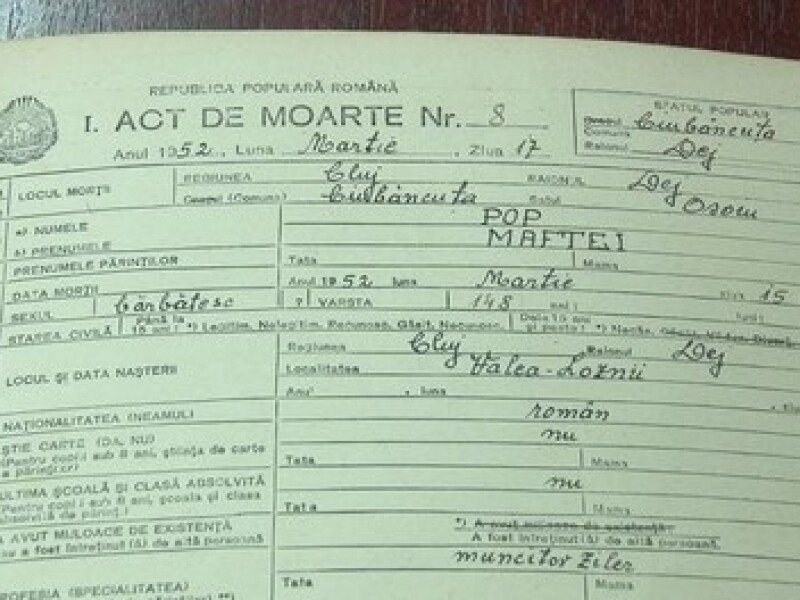 REPUBLICA POPULARĂ ROMÂNĂ
I. ACT DE MOARTE Nr. 8
Anul 1952, Luna Martie, Ziua 17
SFATUL POPULAR
Comuna Ciubăncuța
Raionul Dej
LOCUL MORȚII
REGIUNEA Cluj RAIONUL Dej
Orașul (Comuna) Ciubăncuța Satul Osoiu
a) NUMELE POP
b) PRENUMELE MAFTEI
PRENUMELE PĂRINȚILOR Tata Mama
DATA MORȚII Anul 1952 luna Martie ziua 15
SEXUL bărbătesc VARSTA 148 ani luni
STAREA CIVILĂ Până la 15 ani: *) Legitim, Nelegitim, Recunosc, Găsit, Necunosc. Dela 15 ani și peste: *)
LOCUL ȘI DATA NAȘTERII
Regiunea Cluj Raionul Dej
Localitatea Valea-Loznii
Anul , luna
NAȚIONALITATEA (NEAMUL) român
ȘTIE CARTE (DA, NU) nu
(Pentru copii sub 8 ani, știința de carte
a părinților) Tata Mama
ULTIMA ȘCOALĂ ȘI CLASĂ ABSOLVITĂ nu
(Pentru copii sub 8 ani, școala și clasa
absolvită de părinți) Tata Mama
A AVUT MIJLOACE DE EXISTENȚĂ *) A avut mijloace de existență
sau a fost întreținut(ă) de altă persoană A fost întreținut(ă) de altă persoană.
muncitor ziler
PROFESIA (SPECIALITATEA) Tata Mama